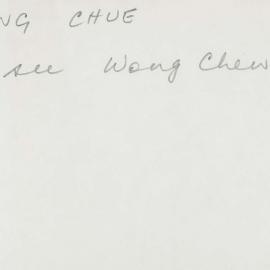 NG CHUE
see Wong Chew